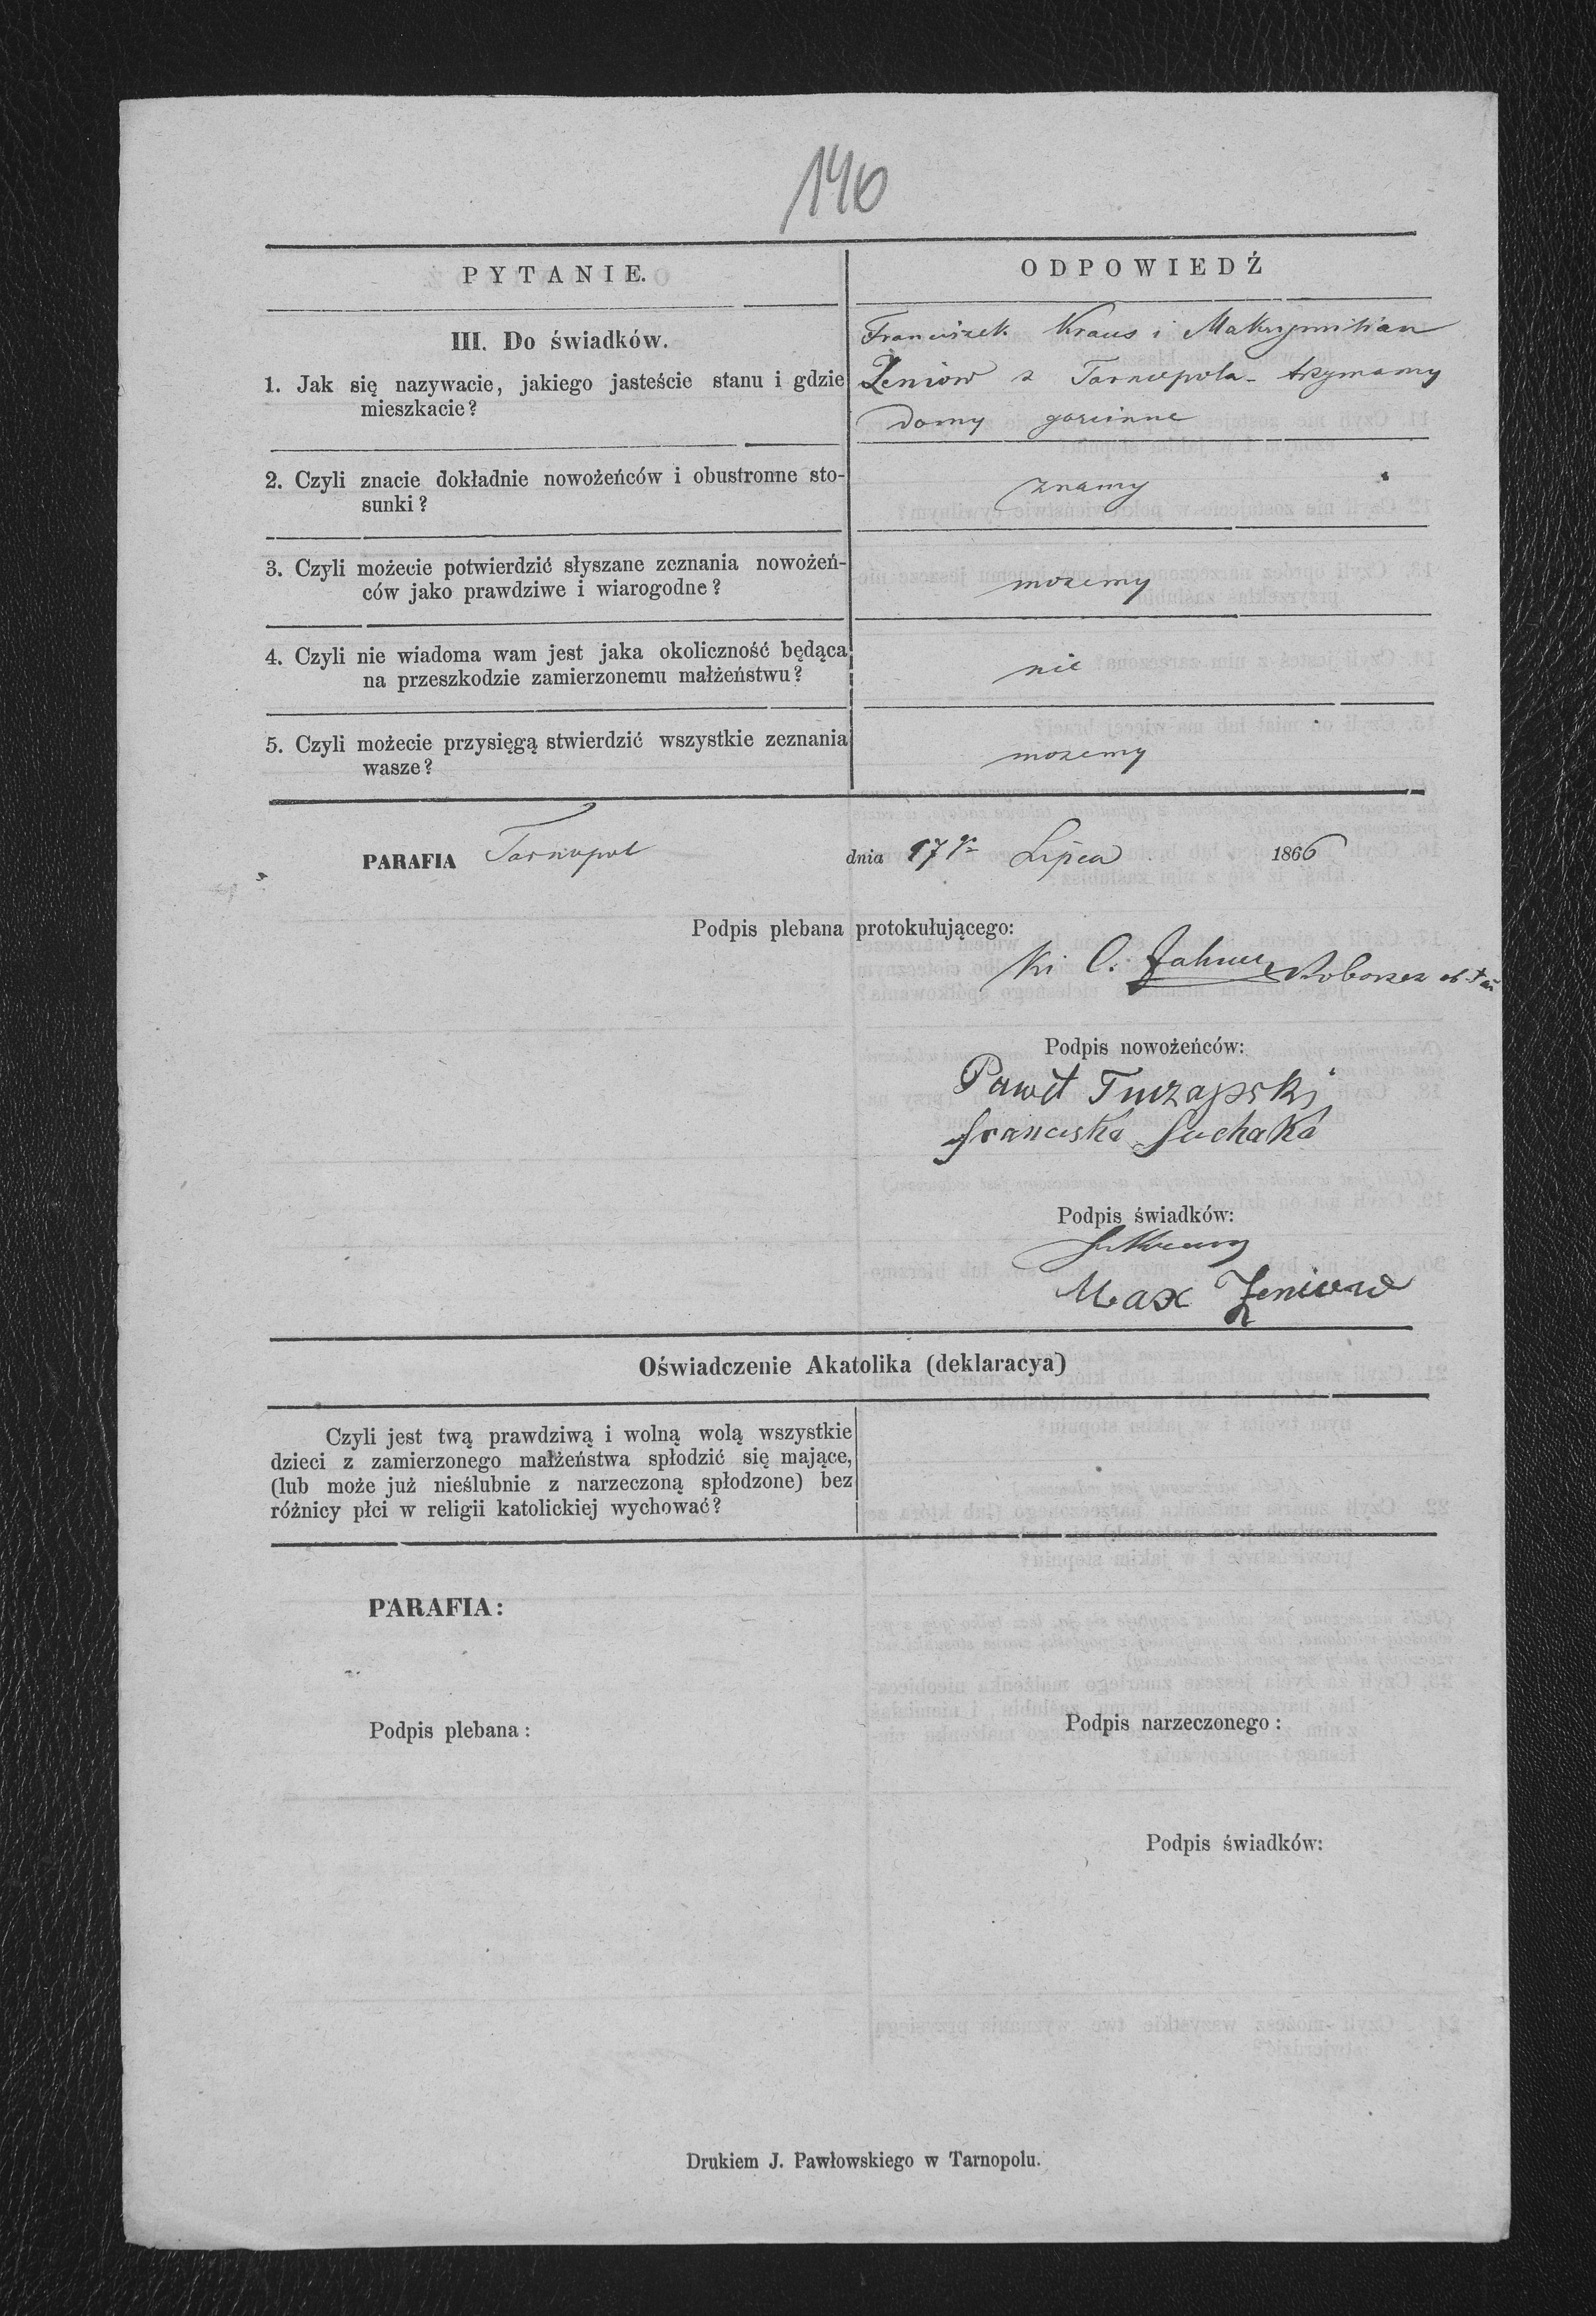 140
PYTANIE.
ODPOWIEDŹ
III. Do świadków.
1. Jak się nazywacie, jakiego jasteście stanu i gdzie
mieszkacie?
Franciszek Kraus i Maksymilian
Zeniow z Tarnopola - trzymamy
domy goscinne
2. Czyli znacie dokładnie nowożeńców i obustronne sto-
sunki?
znamy
3. Czyli możecie potwierdzić słyszane zeznania nowożeń-
ców jako prawdziwe i wiarogodne?
mozemy
4. Czyli nie wiadoma wam jest jaka okoliczność będąca
na przeszkodzie zamierzonemu małżeństwu?
nie
5. Czyli możecie przysięgą stwierdzić wszystkie zeznania
wasze?
mozemy
PARAFIA Tarnopol dnia 17 Lipca 1866
Podpis plebana protokułującego:
Podpis nowożeńców:
Paweł
Franciska Suchaka
Podpis świadków:
Max Zeniow
Oświadczenie Akatolika (deklaracya)
Czyli jest twą prawdziwą i wolną wolą wszystkie
dzieci z zamierzonego małżeństwa spłodzić się mające,
(lub może już nieślubnie z narzeczoną spłodzone) bez
różnicy płci w religii katolickiej wychować?
PARAFIA:
Podpis plebana:
Podpis narzeczonego:
Podpis świadków:
Drukiem J. Pawłowskiego w Tarnopolu.